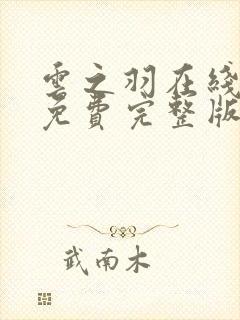 雲之羽在綫
免費完整版
武南木